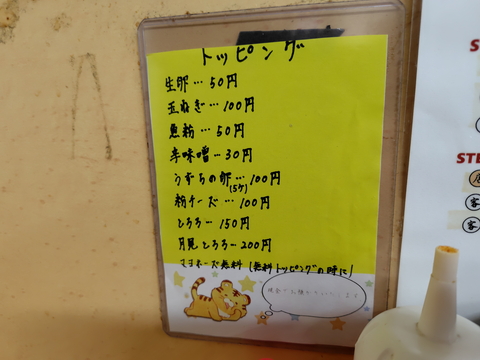 トッピング
生卵…50円
玉ねぎ…100円
魚粉…50円
辛味噌…30円
うずらの卵…100円
(5ケ)
粉チーズ…100円
とろろ…150円
月見とろろ…200円
マヨネーズ無料(無料トッピングの時に)
現金でお願いいたします
S
STE